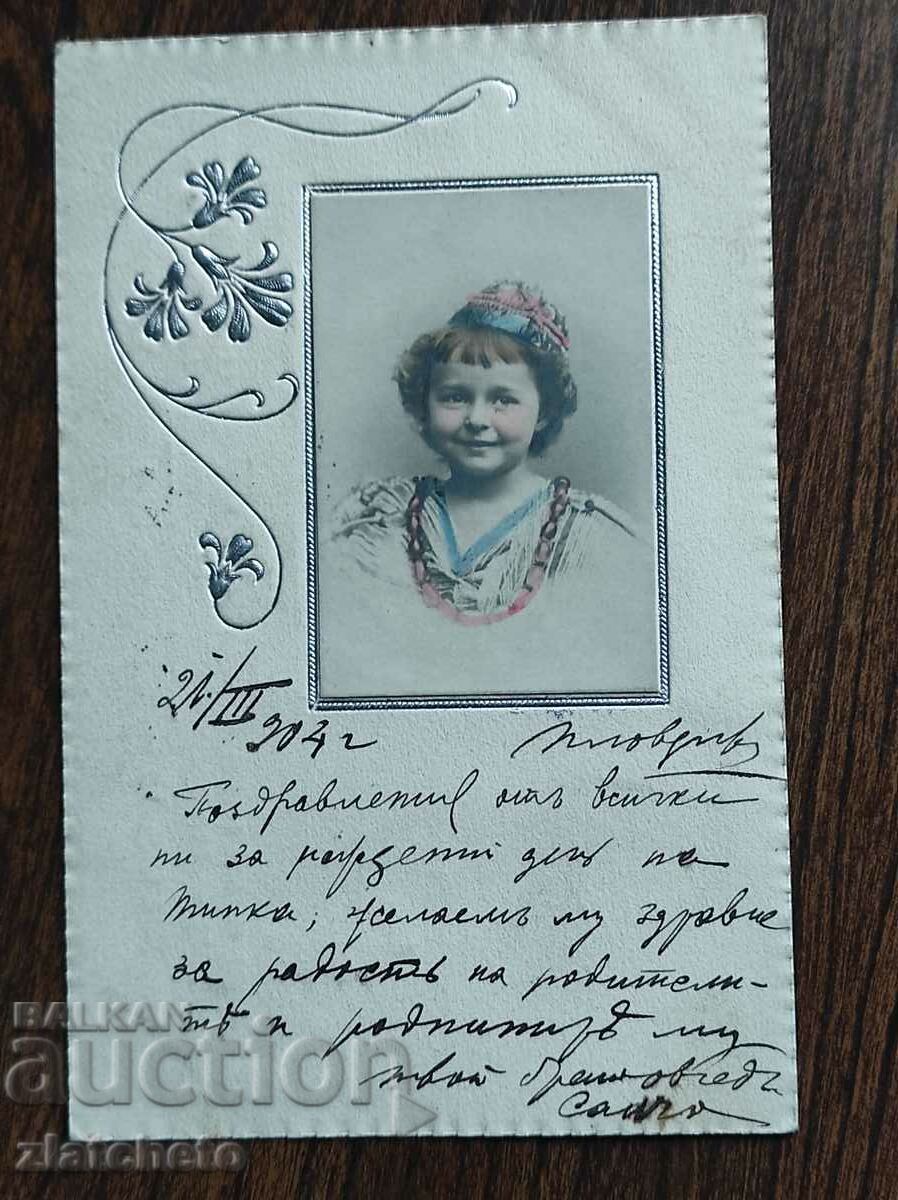 21./III
904 г Пловдивъ
Поздравления отъ всички
ни за рождени день на
желаемъ му здравие
за радость на родители-
тѣ и роднинитѣ му
твой братовчедъ
BALKAN
auction
zlatcheto